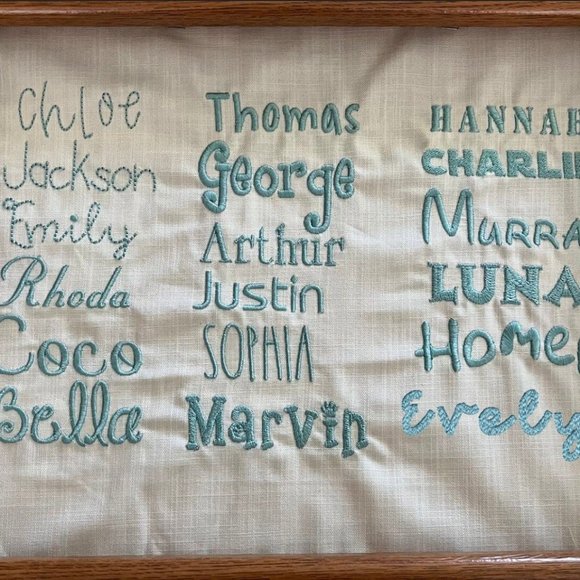 Chloe
Jackson
Emily
Rhoda
Coco
Bella
Thomas
George
Arthur
Justin
SOPHIA
Marvin
HANNAH
CHARLIE
MURRA
LUNA
Homer
Evely